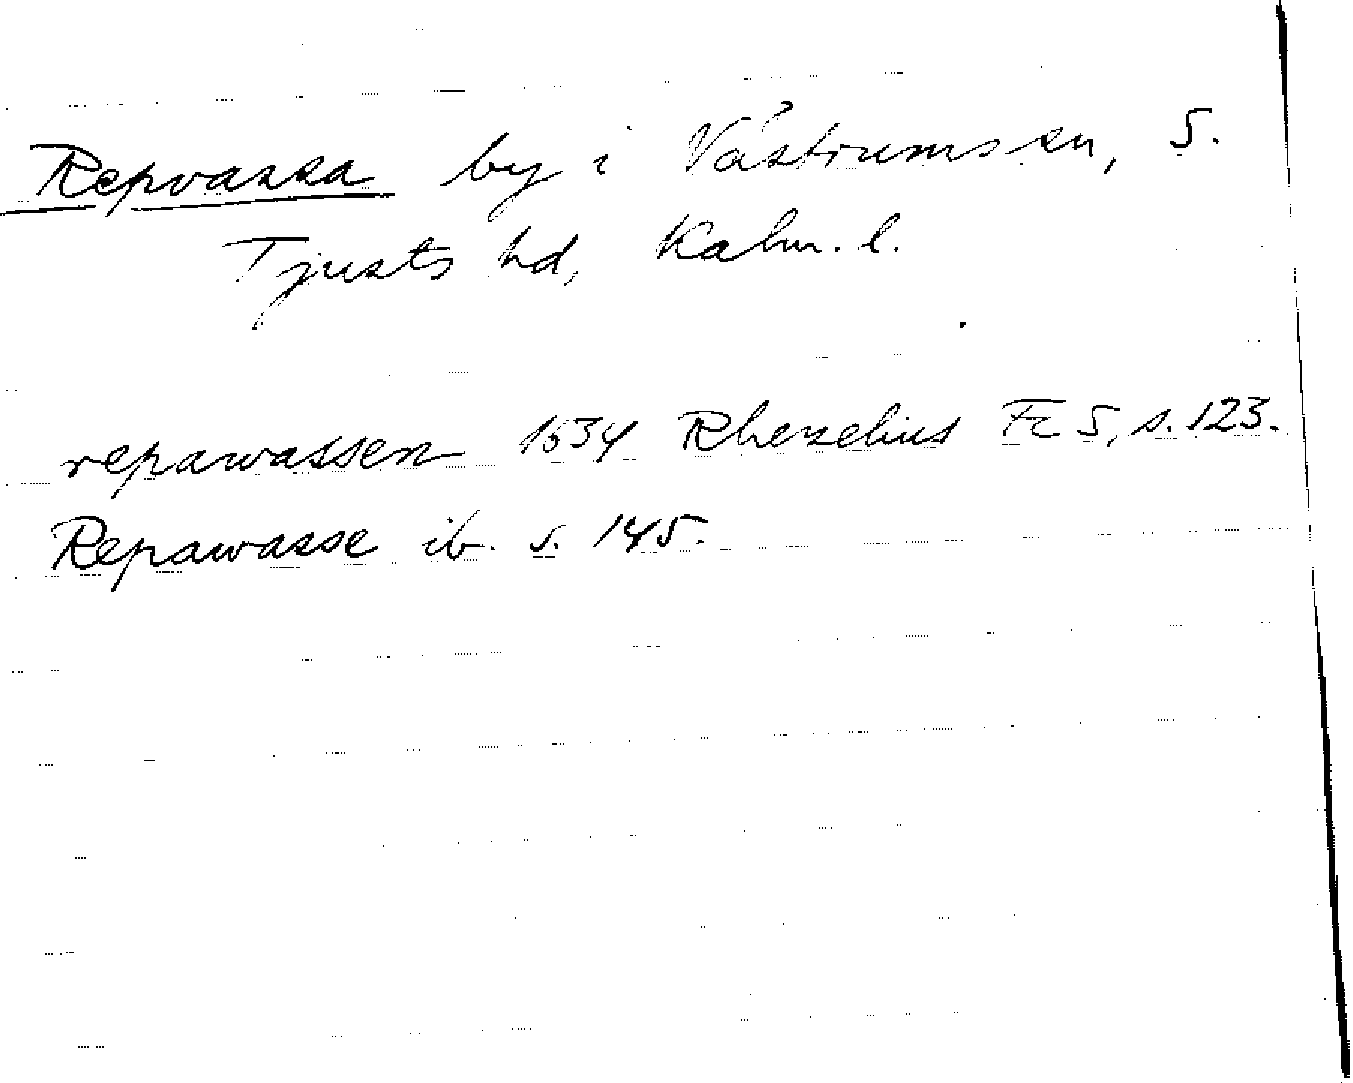 Repvassa by i Västrums sn, S.
Tjusts hd, Kalm. l.
repawassen 1634 Rhezelius Fc 5, s. 123.
Repawasse ib. s. 145.